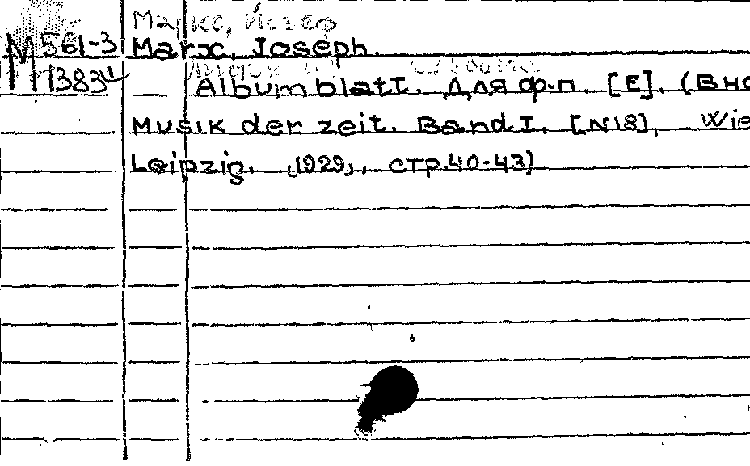 Маркс, Йозеф
М 561-3 Marx, Joseph
1383 Albumblatt. Для ф.п. [E]. (В кн
Musik der zeit. Band I. [N18], Wie
Leipzig. [1929], стр.40-43)